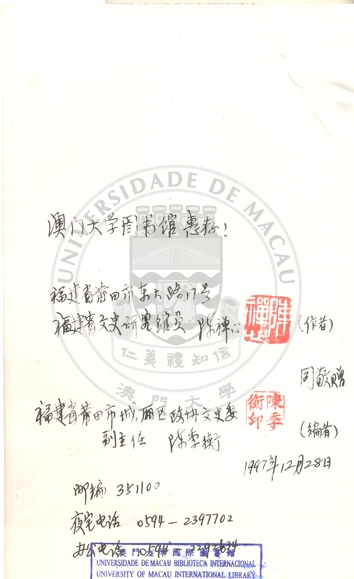 UNIVERSIDADE DE MACAU
澳门大学图书馆惠存!
福建省莆田市东大路17号
福建省文史研究馆员 陈禅心
陳禪心
(作者)
仁義禮知信
同敬赠
澳門大學
福建省莆田市城厢区政协文史委
副主任 陈季衡
陳季衡印
(编者)
1997年12月28日
邮编 351100
夜宅电话 0594-2397702
办公电话 0594
澳門大學國際圖書館
UNIVERSIDADE DE MACAU BIBLIOTECA INTERNACIONAL
UNIVERSITY OF MACAU INTERNATIONAL LIBRARY